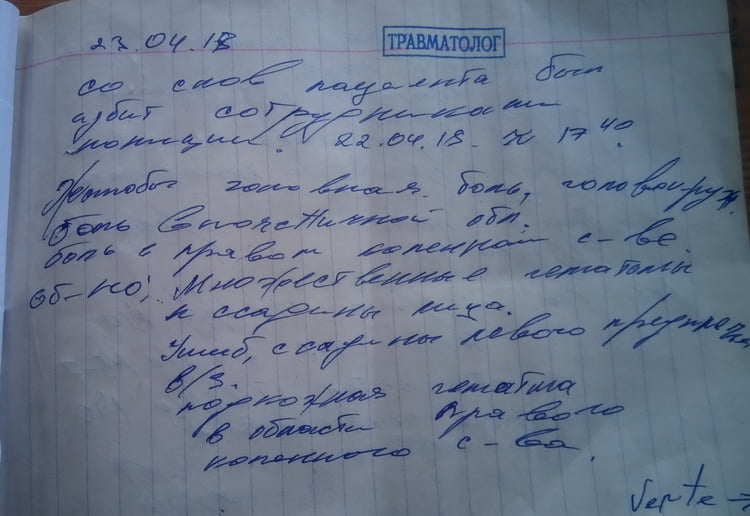 23.04.18
ТРАВМАТОЛОГ
со слов пациента был
избит сотрудниками
полиции. 22.04.18. 17 40
Жалобы головная боль, головокруж.
боль в поясничной обл.
боль в правом коленном с-ве.
Об-но: Множественные гематомы
и ссадины лица.
Ушиб, ссадины левого предплечья
в/3.
подкожная гематома
в области правого
коленного с-ва.
Verte →